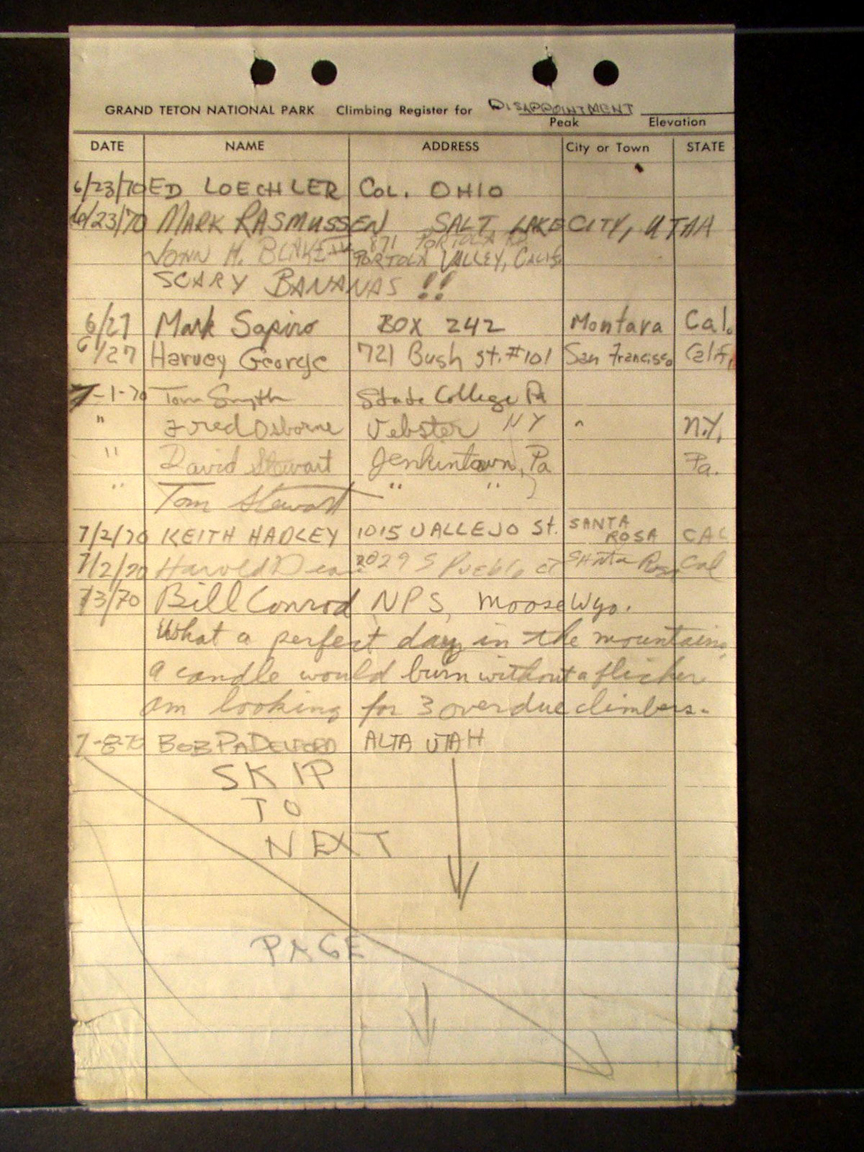 GRAND TETON NATIONAL PARK Climbing Register for DISAPPOINTMENT
Peak Elevation
DATE NAME ADDRESS City or Town STATE
6/23/70 ED LOECHLER COL. OHIO
6/23/70 MARK RASMUSSEN SALT LAKE CITY, UTAH
JOHN H. BLAKE 871 PORTOLA RD.
PORTOLA VALLEY, CALIF.
SCARY BANANAS !!
6/27 Mark Sapiro BOX 242 Montara Cal.
6/27 Harvey George 721 Bush St. #101 San Francisco Calif.
7-1-70 Tom Smyth State College Pa
" Fred Osborne Webster NY " N.Y.
" David Stewart Jenkintown, Pa Pa.
" Tom Stewart " "
7/2/70 KEITH HADLEY 1015 VALLEJO St. SANTA ROSA CAL
7/2/70 Harold Dean 2029 S Pueblo ct Santa Rosa Cal
7/3/70 Bill Conrod NPS, Moose Wyo.
What a perfect day in the mountains
a candle would burn without a flicker
am looking for 3 overdue climbers.
7-8-70 BOB PADELFORD ALTA UTAH
SKIP
TO
NEXT
PAGE